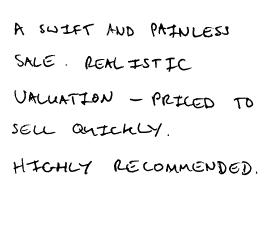 A SWIFT AND PAINLESS
SALE. REALISTIC
VALUATION – PRICED TO
SELL QUICKLY.
HIGHLY RECOMMENDED.